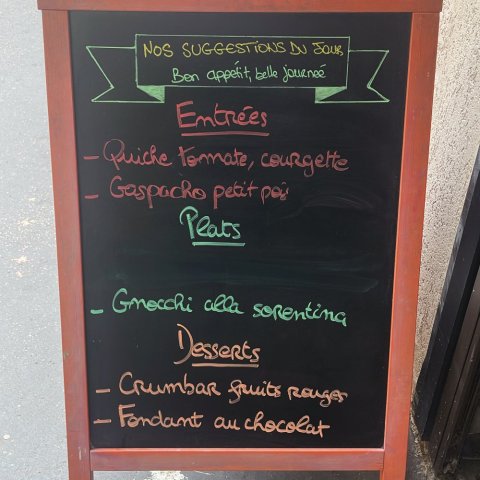 NOS SUGGESTIONS DU JOUR
Bon appétit, belle journeé
Entrées
- Quiche tomate, courgette
- Gaspacho petit pois
Plats
- Gnocchi alla sorentina
Desserts
- Crumbar fruits rouges
- Fondant au chocolat